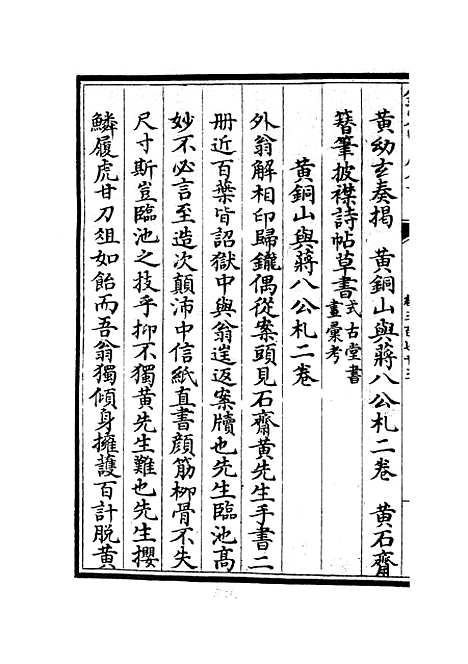 黄幼玄奏揭　黄銅山與蔣八公札二卷　黄石齋
簪筆披襟詩帖草書式古堂書
畫彙考
黄銅山與蔣八公札二卷
外翁解相印歸鑨偶從案頭見石齋黄先生手書二
册近百葉皆詔獄中與翁逞返案牘也先生臨池髙
妙不必言至造次顛沛中信紙直書顔筋柳骨不失
尺寸斯豈臨池之技乎抑不獨黄先生難也先生攖
鱗履虎甘刀俎如飴而吾翁獨傾身擁護百計脱黄